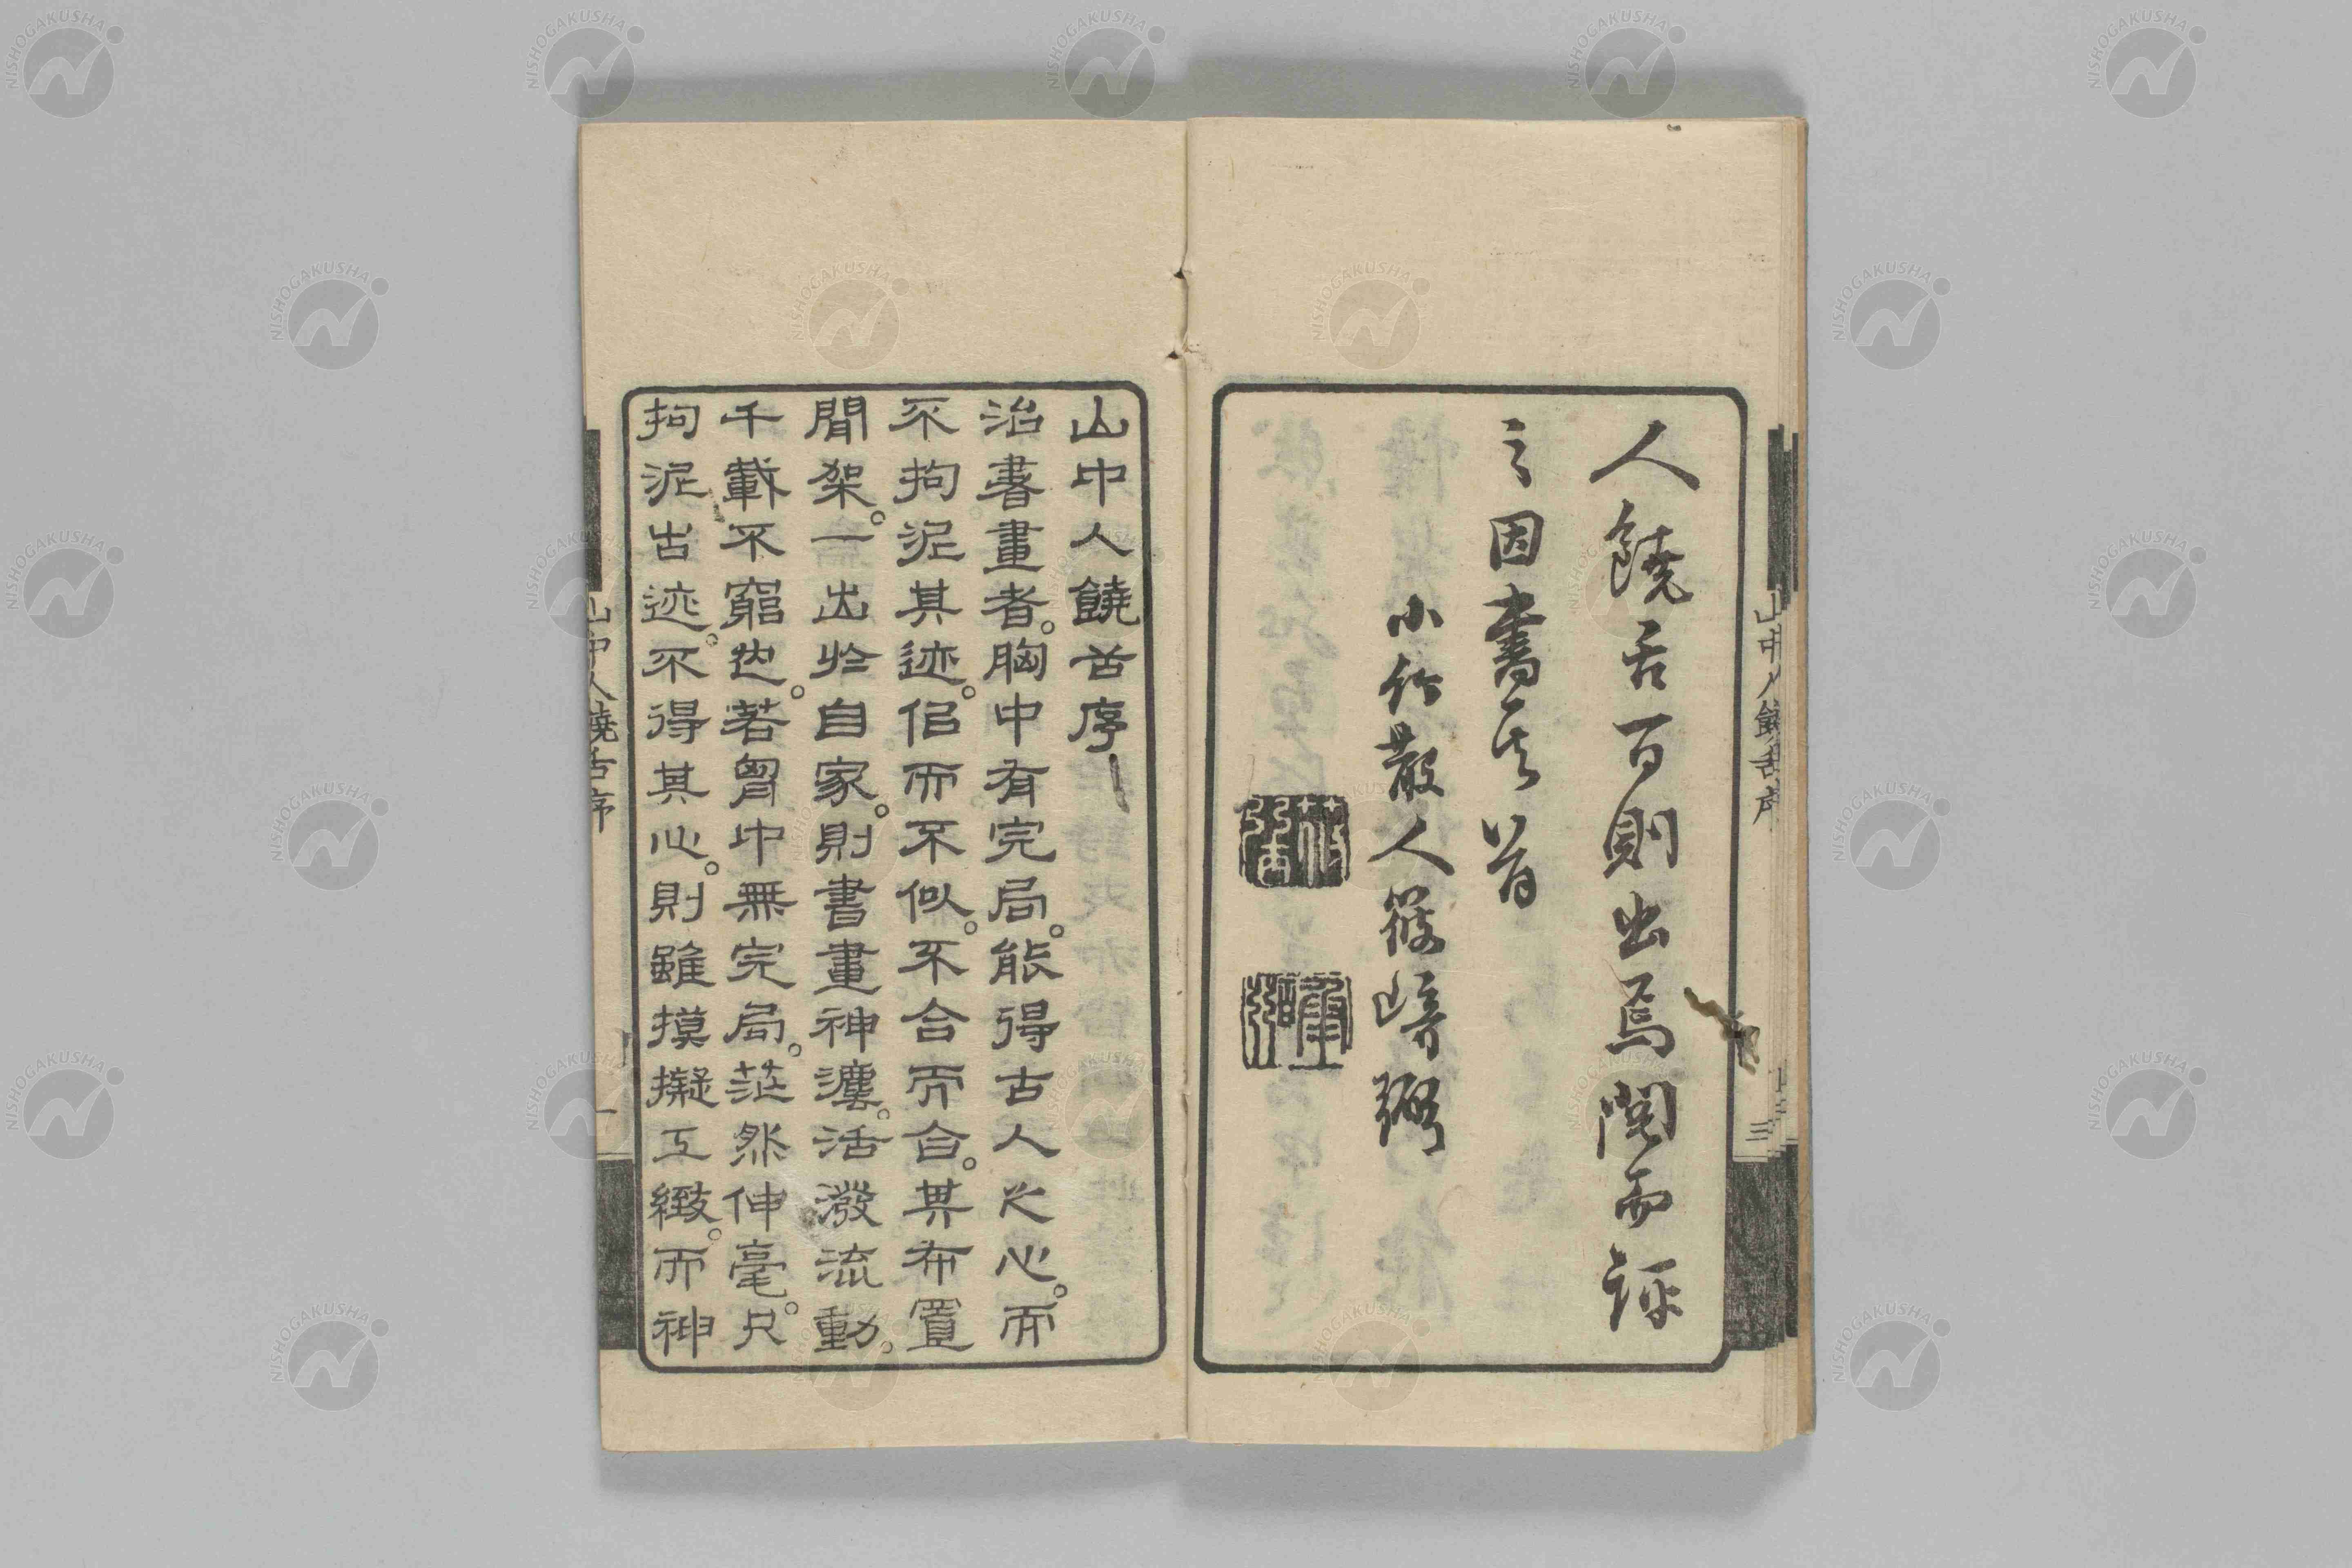 人饒舌百則出焉閲而評
之因書其首
小竹散人篠崎弼
山中人饒舌序
治書畫者。胸中有完局。能得古人之心。而
不拘泥其迹。侶而不似。不合而合。其布置
間架。一出於自家。則書畫神瀍。活潑流動。
千載不窮也。若胷中無完局。茫然伸毫。只
拘泥古迹。不得其心。則雖摸擬工緻。而神
山中人饒舌序
三
山中人饒舌序
一
NISHOGAKUSHA